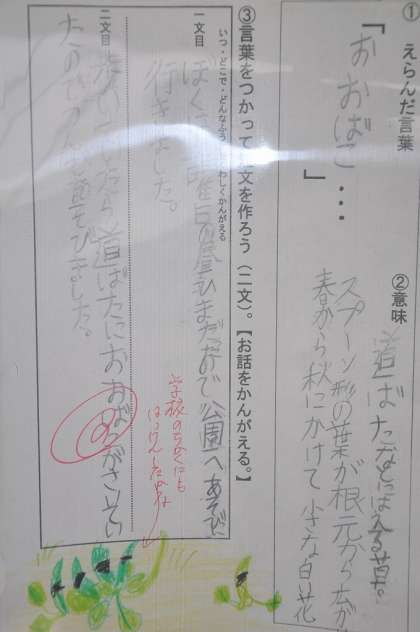 ① えらんだ言葉
「おおばこ…」
② 意味
道ばたなどにはえる草。
スプーン形の葉が根元から
春から秋にかけて小さな白花
③ 言葉をつかって文を作ろう（二文）。【お話をかんがえる。】
いつ・どこで・どんなふうに
くわしくかんがえる
一文目
ぼくは 曜日の昼ひまだったので公園へあそびに
行きました。
二文目
歩いていたら道ばたにおおばこがさいてい
た 遊びました。
学校のちかくにも
はっけんしたかな